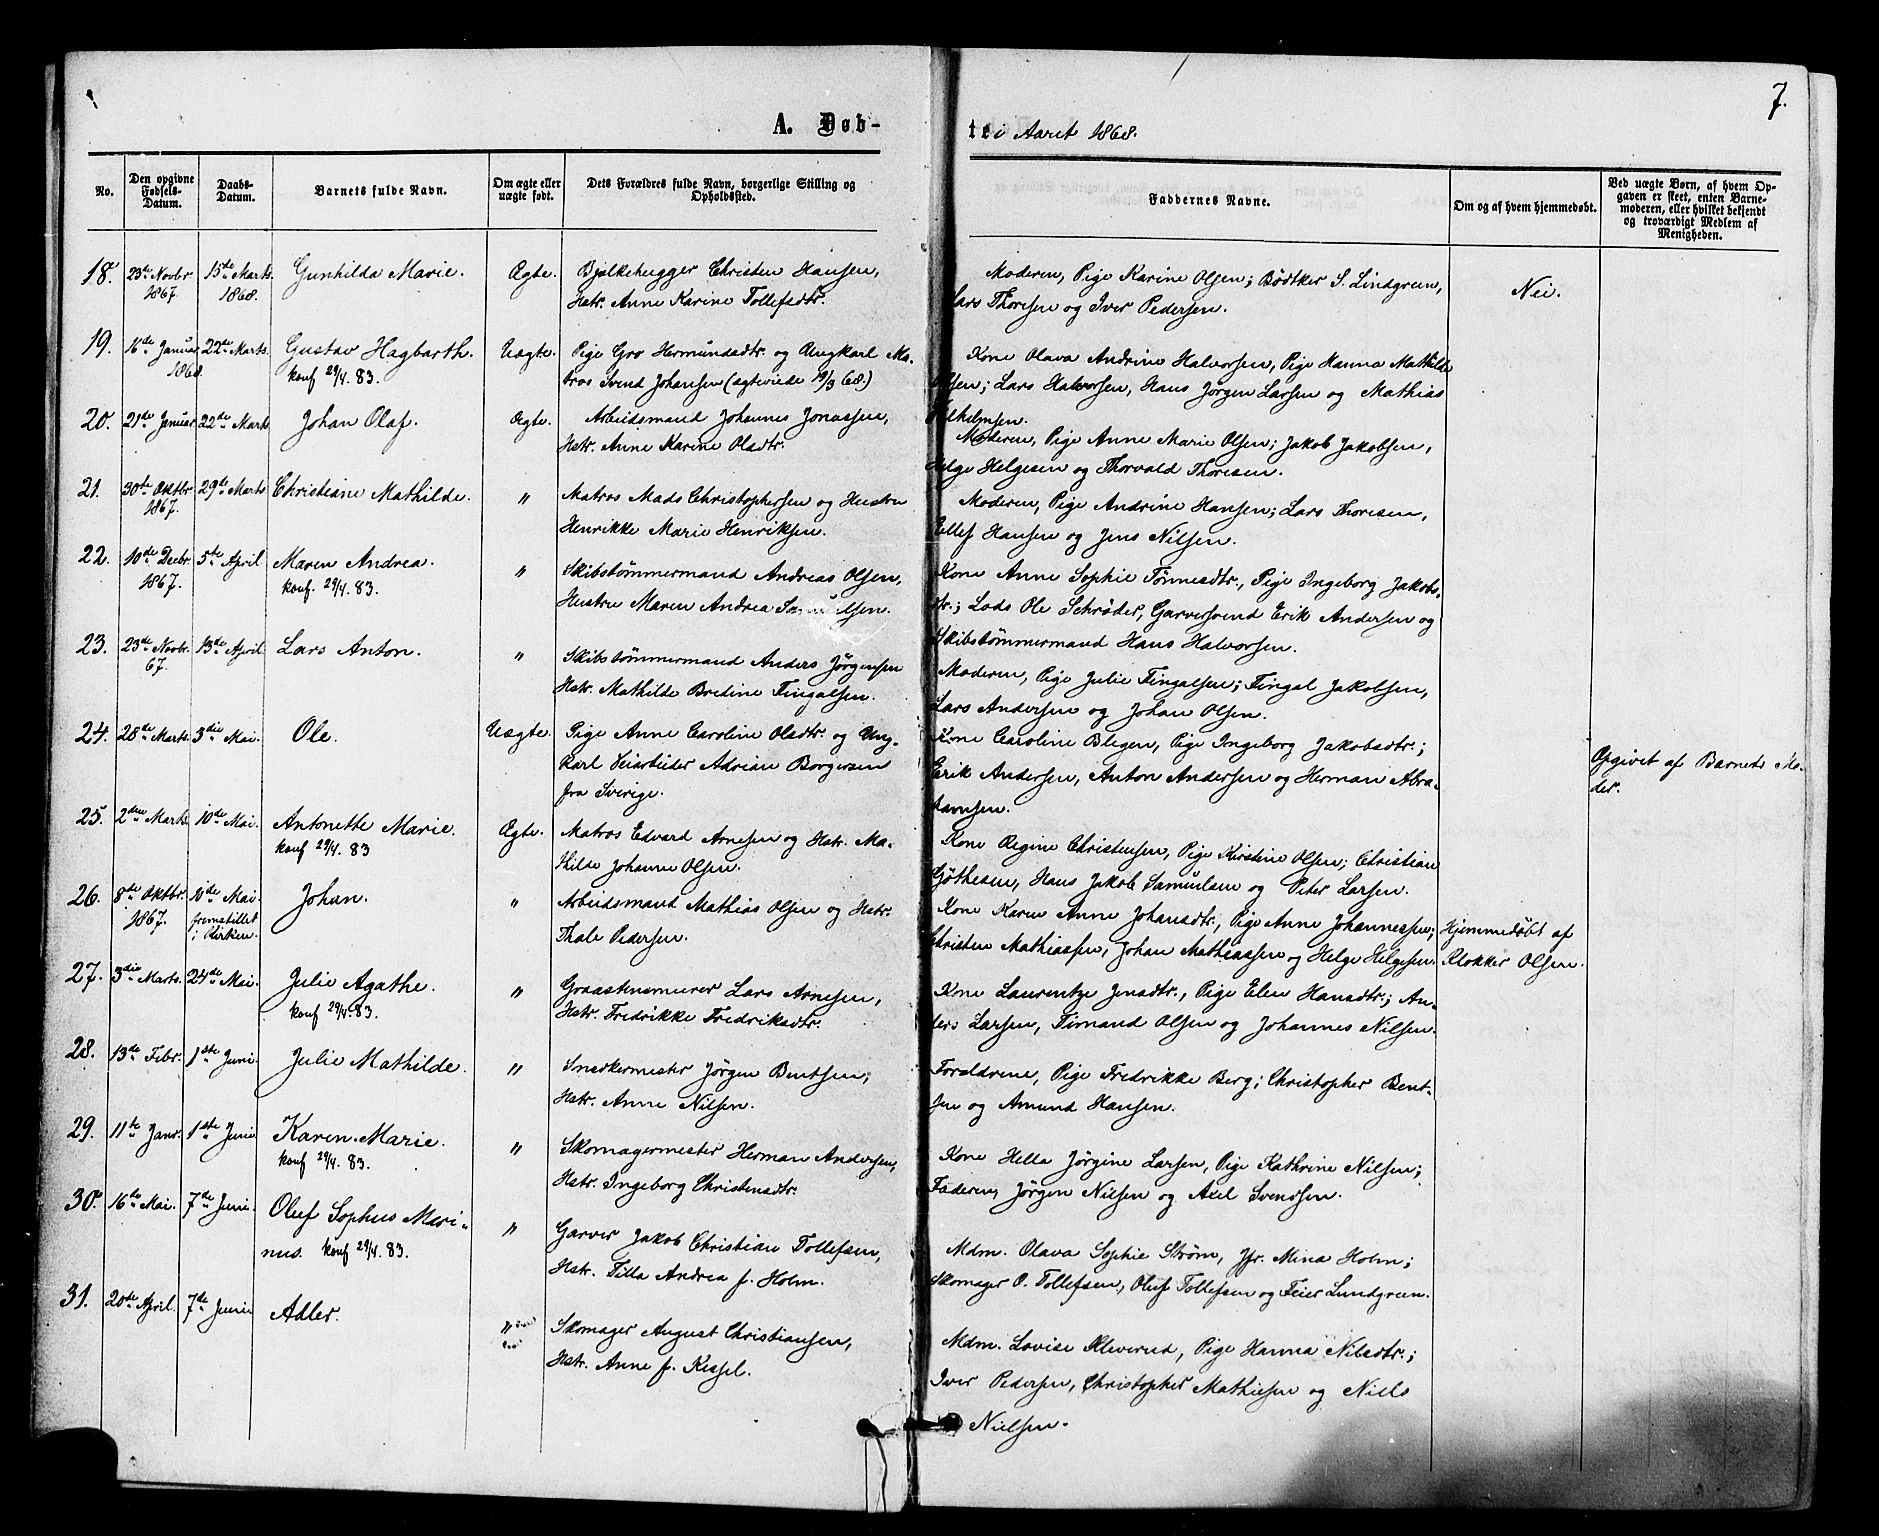 7.
A. Døb-
te i Aaret 1868.
No.
Den opgivne Fødsels-Datum.
Daabs-Datum.
Barnets fulde Navn.
Om ægte eller uægte født.
Dets Forældres fulde Navn, borgerlige Stilling og Opholdssted.
Faddernes Navne.
Om og af hvem hjemmedøbt.
Ved uægte Børn, af hvem Opgaven er skeet, enten Barnemoderen, eller hvilket bekjendt og troværdigt Medlem af Menigheden.
18. 23de Novbr 15de Marts Gunhilda Marie. Ægte. Bjelkehugger Christen Hansen, Moderen, Pige Karine Olsen; Bødtker S. Lindgreen,
1867. 1868. Hstr. Anne Karine Tollefsdtr. Lars Thoresen og Iver Pedersen. Nei.
19. 16de Januar 22de Marts. Gustav Hagbarth. Uægte. Pige Gro Hermundsdtr. og Ungkarl Ma- Kone Olava Andrine Halvorsen, Pige Hanna Mathilde
1868. konf 29/4. 83. tros Svend Johansen (ægteviede 19/3 68.) Olsen; Lars Halvorsen, Hans Jørgen Larsen og Mathias
Vilhelmsen.
20. 21de Januar 22de Marts Johan Olaf. Ægte. Arbeidsmand Johannes Jonassen, Moderen, Pige Anne Marie Olsen; Jakob Jakobsen,
Hstr. Anne Karine Olsdtr. Helge Helgesen og Thorvald Thoresen.
21. 30te Oktbr 29de Marts Christiane Mathilde. " Matros Mads Christophersen og Hustru Moderen, Pige Andrine Hansen; Lars Thoresen,
1867. Henrikke Marie Henriksen. Ellef Hansen og Jens Nilsen.
22. 10de Decbr. 5te April Maren Andrea. " Skibstømmermand Andreas Olsen, Kone Anne Sophie Tønnesdtr., Pige Ingeborg Jakobs-
1867. konf. 29/4. 83. Hustru Maren Andrea Samuelsen. dtr.; Lods Ole Schrøder, Garversvend Erik Andersen og
Skibstømmermand Hans Halvorsen.
23. 23de Novbr. 13de April Lars Anton. " Skibstømmermand Anders Jørgensen Moderen, Pige Julie Fingalsen; Fingal Jakobsen,
67. Hstr. Mathilde Bredine Fingalsen. Lars Andersen og Johan Olsen.
24. 28de Marts. 3die Mai. Ole. Uægte. Pige Anne Caroline Olsdtr. og Ung- Kone Caroline Blegen, Pige Ingeborg Jakobsdtr.;
karl Veiarbeider Adrian Borgersen Erik Andersen, Anton Andersen og Herman Abra- Opgivet af Barnets Mo-
fra Sverige. hamsen. der.
25. 2den Marts. 10de Mai. Antonette Marie. Ægte. Matros Edvard Arnesen og Hstr. Ma- Kone Regine Christensen, Pige Kirstine Olsen; Christian
konf 29/4. 83 thilde Johanne Olsen. Gøthesen, Hans Jakob Samuelsen og Peter Larsen.
26. 8de Oktbr. 10de Mai Johan. " Arbeidsmand Mathias Olsen og Hstr. Kone Karen Anne Johansdtr., Pige Anne Johannessen; Hjemmedøbt af
1867. fremstillet i Kirken. Thale Pedersen. Christen Mathiassen, Johan Mathiassen og Helge Helgesen. Klokker Olsen.
27. 3die Marts. 24de Mai. Julie Agathe. " Graastensmurer Lars Arnesen, Kone Laurentze Jensdtr., Pige Elen Hansdtr.; An-
konf 29/4. 83. Hstr. Fredrikke Fredriksdtr. ders Larsen, Timand Olsen og Johannes Nilsen.
28. 13de Febr. 1ste Juni. Julie Mathilde. " Snedkermester Jørgen Bentsen, Forældrene, Pige Fredrikke Berg; Christopher Bent-
Hstr. Anne Nilsen. sen og Amund Hansen.
29. 11te Janr. 1ste Juni Karen Marie. " Skomagermester Herman Andersen, Kone Hella Jørgine Larsen, Pige Kathrine Nilsen;
konf 29/4. 83. Hstr. Ingeborg Christensdtr. Faderen, Jørgen Nilsen og Axel Svendsen.
30. 16de Mai. 7de Juni. Oluf Sophus Mari- " Garver Jakob Christian Tollefsen, Mdm. Olava Sophie Strøm, Jfr. Mina Holm;
nus. konf 29/4. 83. Hstr. Tilla Andrea f. Holm. Skomager O. Tollefsen, Oluf Tollefsen og Feier Lundgreen.
31. 20de April. 7de Juni Adler. " Skomager August Christiansen, Mdm. Lovise Kleverud, Pige Hanna Nilsdtr.;
Hstr. Anne f. Kessel. Iver Pedersen, Christopher Mathiesen og Niels
Nielsen.